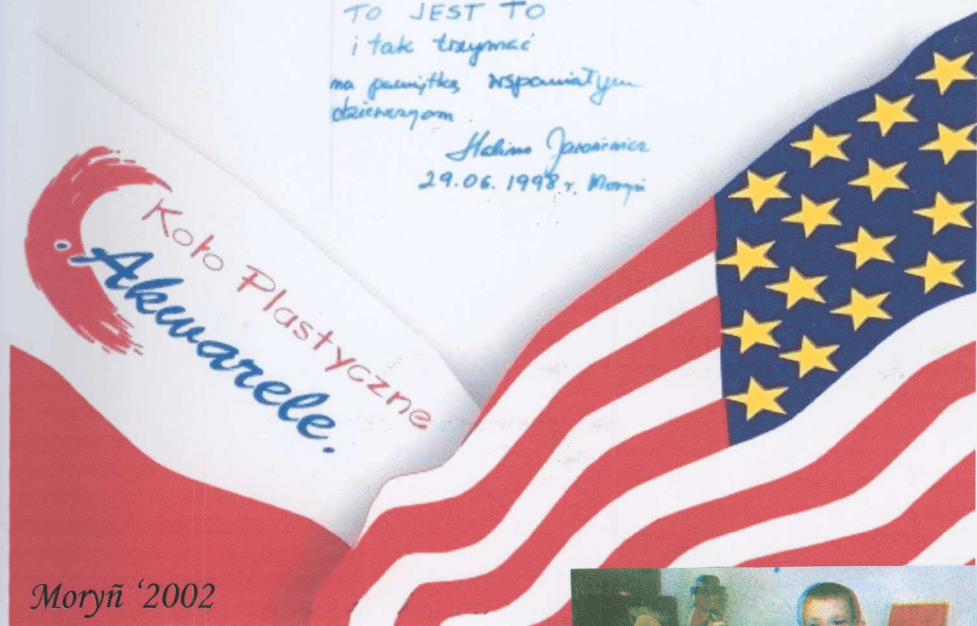 TO JEST TO
i tak trzymać
na pamiątkę wspaniałym
dziewczyom
Halina
29.06.1998 r. Moryń
Koło Plastyczne
Akwarele.
Moryñ ‘2002